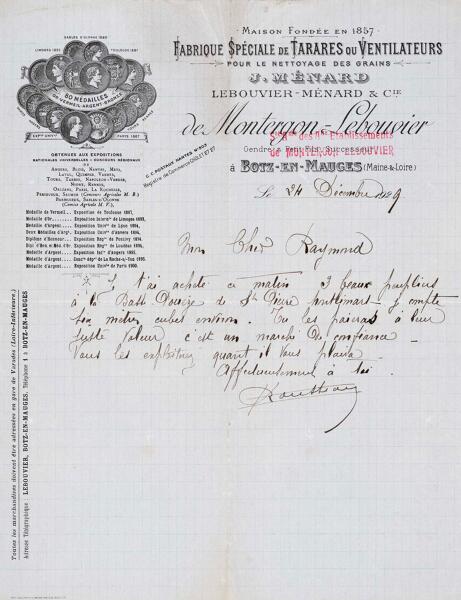 MAISON FONDÉE EN 1857
FABRIQUE SPÉCIALE DE TARARES OU VENTILATEURS
POUR LE NETTOYAGE DES GRAINS
J. MÉNARD
LEBOUVIER-MÉNARD & CIE
de Montergon-Lebouvier
Sté des Ets Etablissements
de MONTERGON-LEBOUVIER
Gendre & Petit Fils Successeurs
à BOTZ-EN-MAUGES (Maine & Loire)
C. C. POSTAUX NANTES N°
Registre de Commerce CHOLET
Le 24 Décembre 1929
SABLES D'OLONNE
LIMOGES
TOULOUSE 1887
80 MÉDAILLES
OR-VERMEIL-ARGENT-BRONZE
EXPon UNIVlle
PARIS 1867
OBTENUES AUX EXPOSITIONS
NATIONALES UNIVERSELLES & CONCOURS RÉGIONAUX
DE
ANGERS, BLOIS, NANTES, METZ,
LAVAL, QUIMPER, VANNES,
TOURS, TARBES, NAPOLÉON-VENDÉE,
NIORT, RENNES,
ORLÉANS, PARIS, LA ROCHELLE,
PÉRIGUEUX, SAUMUR (Concours Agricole M. B.)
BRESSUIRE, SABLES-D'OLONNE
(Comice Agricole M. V.)
Médaille de Vermeil. Exposition de Toulouse 1887.
Médaille d'Or. Exposition Interle de Limoges
Médaille d'Argent. Exposition Univlle de Lyon 1894.
Deux Médailles d'Argt. Exposition Univlle d'Anvers 1894.
Diplôme d'Honneur. Exposition Reg. de
Médaille d'Argent. Exposition Regle de Loudun 1895.
Médaille d'Argent. Exposition d'Angers 1895.
Médaille d'Argent. Concrs dépal de La Roche-s-Yon 1895.
Médaille d'Argent. Exposition Univlle de Paris 1900.
Mon Cher Raymond
J t'ai acheté ce matin 3 beaux peupliers
à la de St
son mètres cubes environ. Tu les paieras à leur
juste valeur c'est un marché de confiance
Vous les quand il vous plaira.
Affectueusement à toi.
Rousseau
Toutes les marchandises doivent être adressées en gare de Varades (Loire-Inférieure)
Adresse Télégraphique : LEBOUVIER, BOTZ-EN-MAUGES. Téléphone 1 à BOTZ-EN-MAUGES